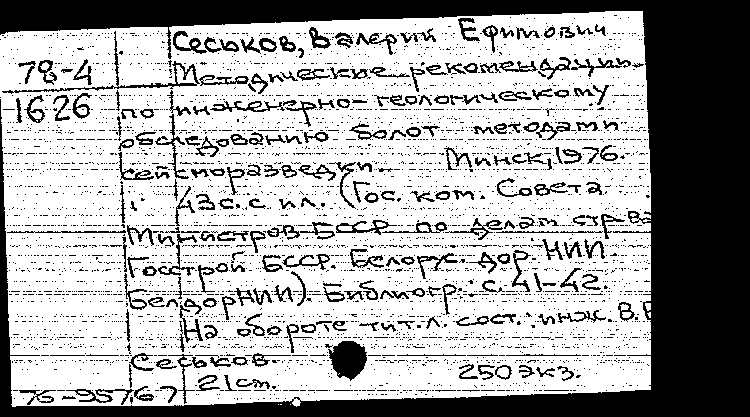 Сеськов, Валерий Ефимович
78-4
Методические рекомендации
1626
по инженерно-геологическому
обследованию болот методами
сейсморазведки. Минск, 1976.
43с. с ил. (Гос. ком. Совета
Министров БССР по делам стр-ва
Госстрой БССР. Белорус. дор. НИИ
БелдорНИИ). Библиогр.: с. 41-42.
На обороте тит. л. сост.: инж. В.Е
Сеськов.
21см. 250 экз.
76-95767